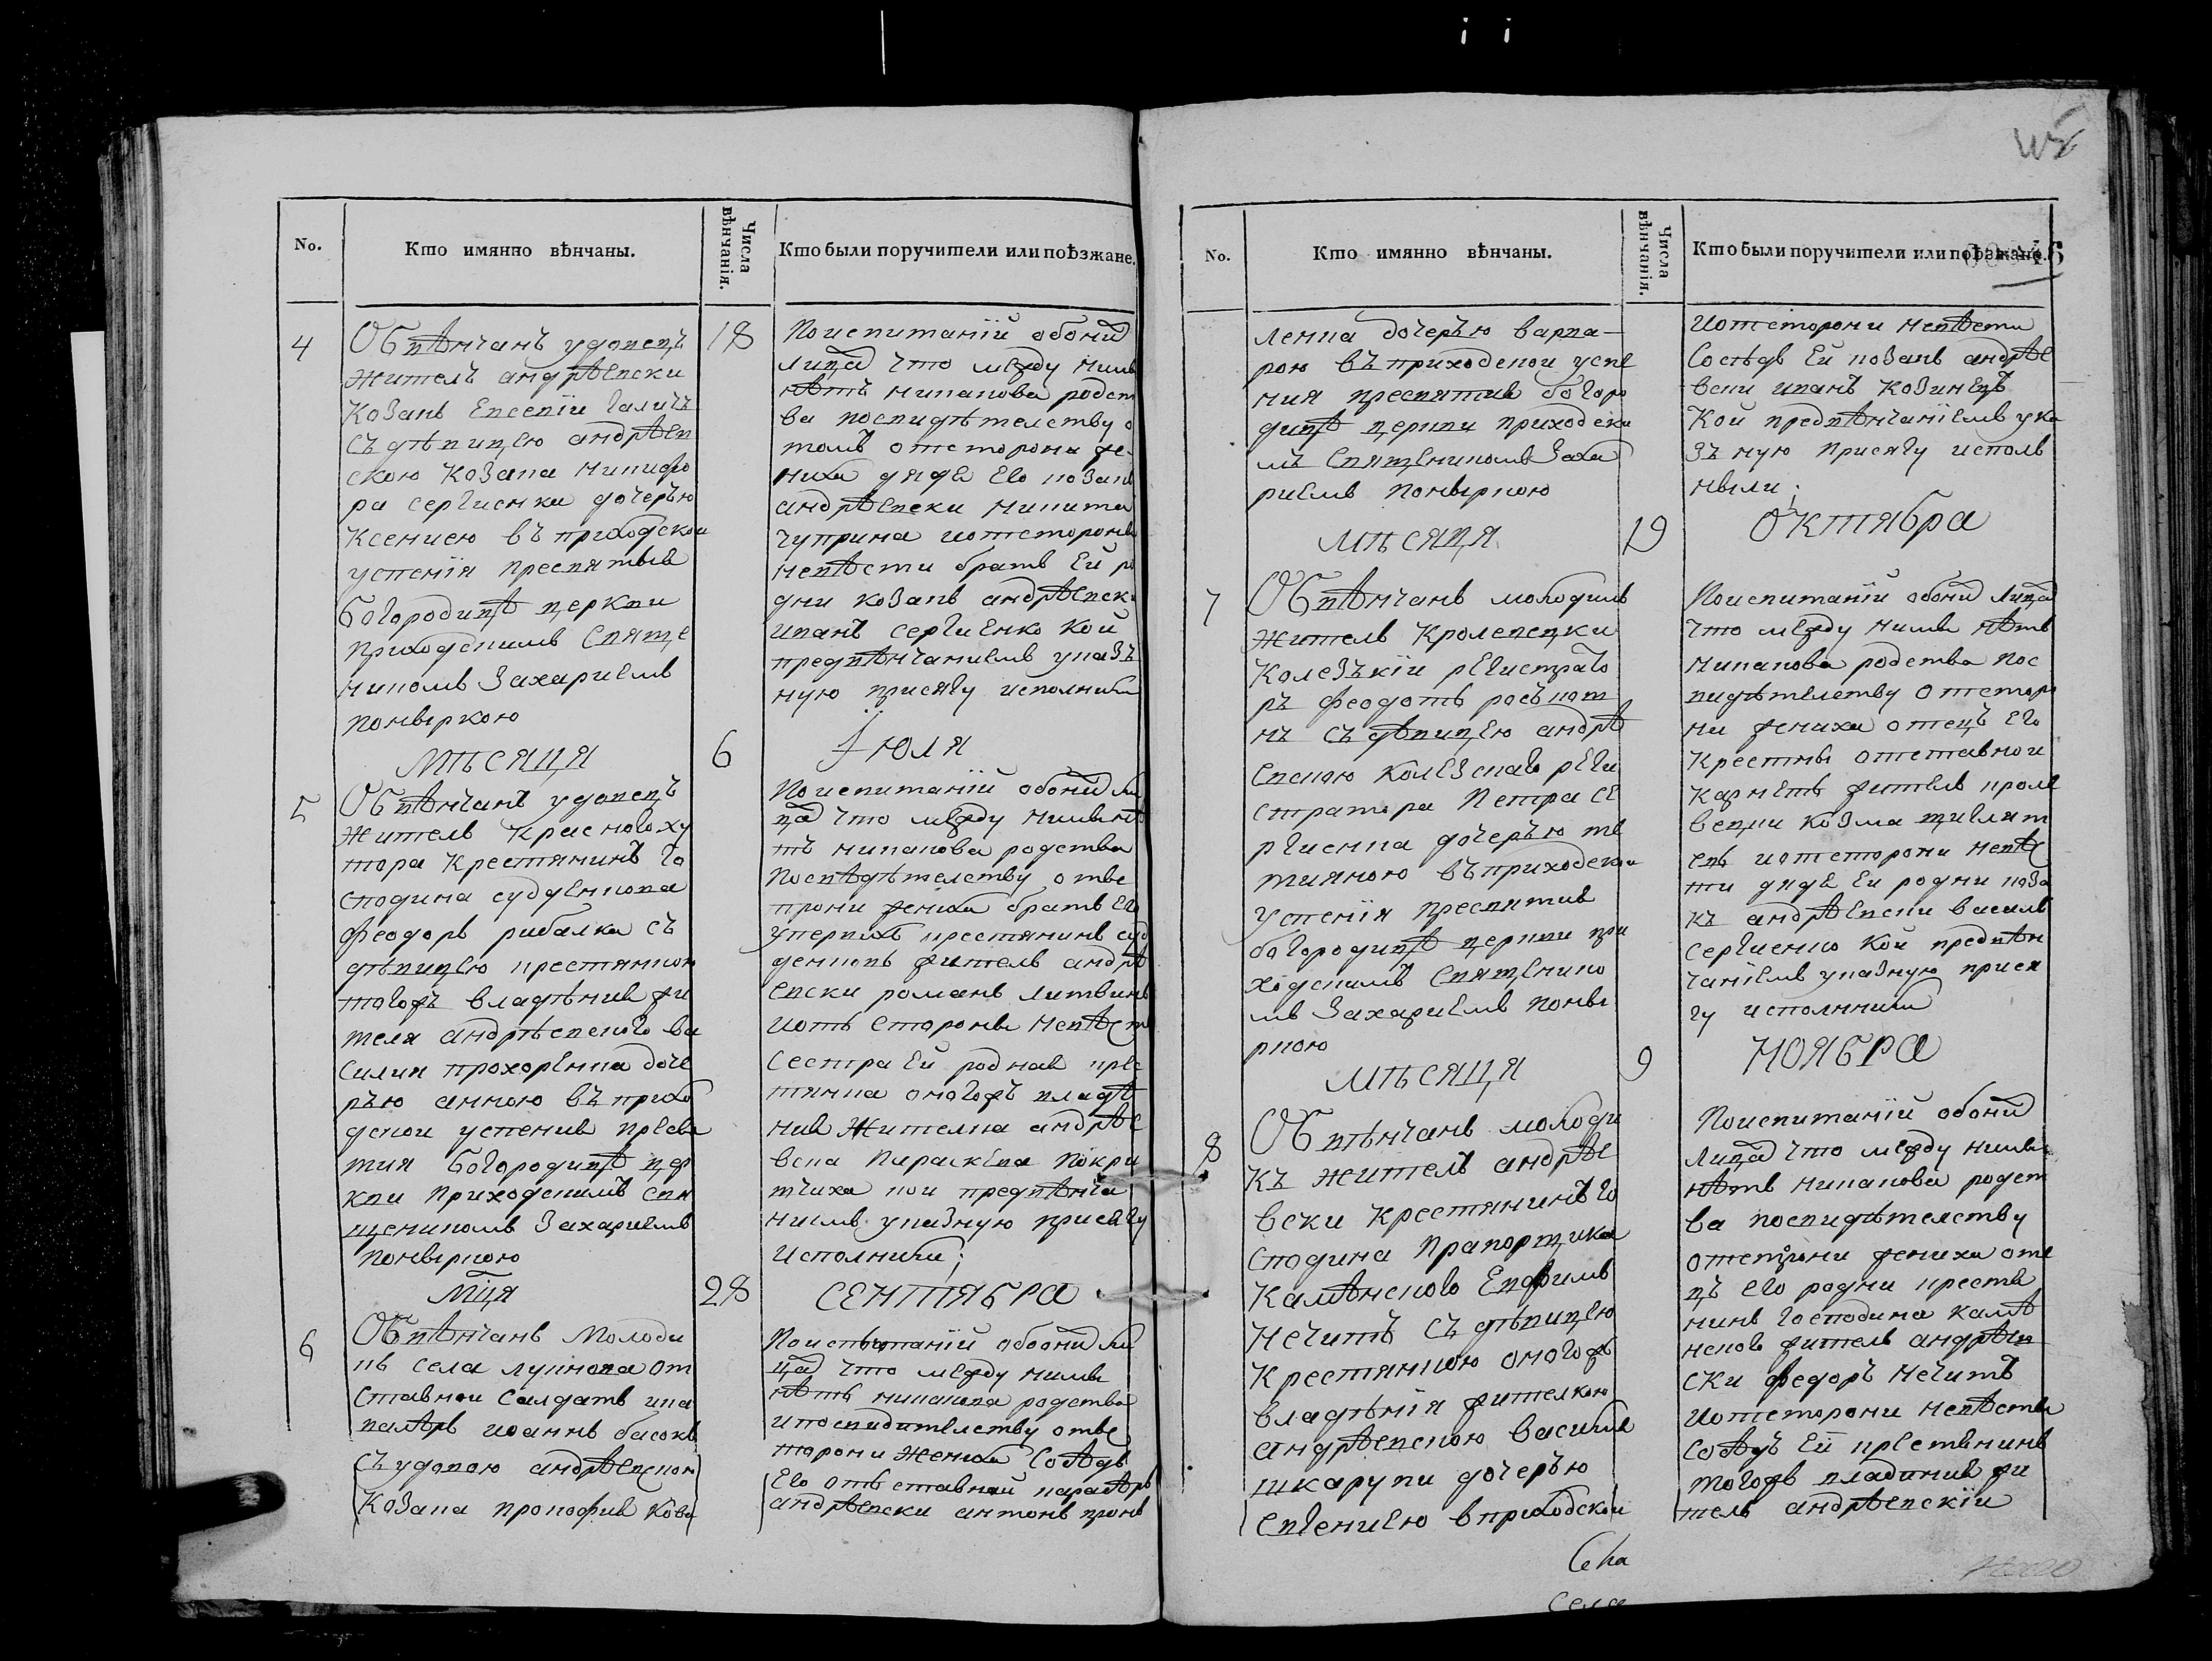 No.
Кто имянно вѣнчаны.
Числа вѣнчанія.
Кто были поручители или поѣзжане.
4
18
Обвѣнчанъ удовецъ
житель андрѣевски
козакъ Евсевіи Галичъ
съ дѣвицею андрѣев
скою козака никифо
ра сергиенка дочерью
Ксениею въ приходской
успенія пресвятыя
богородицѣ церкви
приходскимъ свяще
никомъ Захариемъ
Мѣсяця
По испитаніи обоихъ
лицъ что между ними
нѣтъ никакова родст
ва по свидѣтелству о
томъ от стороны же
ниха дядя его козакъ
андрѣевски никита
чуприна и от стороны
невѣсти братъ ей ро
дни козакъ андрѣевски
иванъ сергиенко кои
предвѣнчаниемъ указъ
ную присягу исполнили
6
Июля
5
Обвѣнчанъ удовецъ
житель Красного ху
тора крестянинъ го
сподина судденкова
феодоръ рибалка съ
дѣвицею крестянкою
тогожъ владѣния жи
теля андрѣевского ва
силия прохоренка доче
рью анною въ прихо
дской успения пресвя
тия богородицѣ цер
кви приходскимъ свя
щеникомъ Захариемъ
Мця
По испитаніи обоихъ ли
цъ что между ними нѣ
тъ никакова родства
по свѣдѣтелству от с
торони жениха братъ его
крестянинъ суд
денковъ житель андрѣ
евски романъ литвинъ
и отъ стороны невѣсти
сестра ей родная крес
тянка оногожъ владѣ
ния жителка андрѣе
вска параскева покри
тчиха кои предвѣнча
ниемъ указную присягу
исполнили;
28
Сентября
6
Обвѣнчанъ молоди
къ села лукнова от
ставной салдатъ ива
съ удовою андрѣевскою
козака прокофия кова
По испытаніи обооихъ ли
цъ что между ними
нѣтъ никакова родства
и по свидителству от с
торони жениха сосѣдъ
его отъставной
андрѣевски антонъ
No.
Кто имянно вѣнчаны.
Числа вѣнчанія.
Кто были поручители или поѣзжане.
ленка дочерью варва-
рою въ приходской успе
ния пресвятия богоро
дицѣ церкви приходски
мъ священикомъ Заха
риемъ
Мѣсяця
И от сторони невѣсти
сосѣдъ ей козакъ андрѣе
вски иванъ козинецъ
кои предвѣнчаніемъ ука
зъную присягу исполь
нили;
19
Октября
7
Обвѣнчанъ молодикъ
житель кролевецки
колезъкіи регистрато
ръ феодотъ
нъ съ дѣвицею андрѣ
евскою колезского реги
стратора Петра се
ргиенка дочерью та
тияною въ приходской
успенія пресвятия
богородицѣ церкви при
ходскимъ священико
мъ Захариемъ
Мѣсяця
По испитаніи обоихъ лицъ
что между ними нѣтъ
никакова родства по с
видѣтелству от сторо
ни жениха отецъ его
крестны отставнои
карнетъ житель кроле
вецки козма
и от сторони невѣс
ти дядя ей родни коза
къ андрѣевски василь
сергиенко кои предвѣн
чаніемъ указную прися
гу исполнили
9
Ноября
8
Обвѣнчанъ молоди
къ житель андрѣе
вски крестянинъ го
сподина прапорщика
Камѣнского Евфимъ
Нечитъ съ дѣвицею
крестянкою оногожъ
владѣнія жителкою
андрѣевскою василия
шкарупи дочерью
евгениею в приходской
По испитаніи обоихъ
лицъ что между ними
нѣтъ никакова родст
ва по свидѣтелству
от сторони жениха оте
цъ его родни крестя
нинъ господина камѣ
нского житель андрѣев
ски федоръ нечитъ
и от сторони невѣсти
сосѣдъ ей крестянинъ
тогожъ владиния жи
тель андрѣевскіи